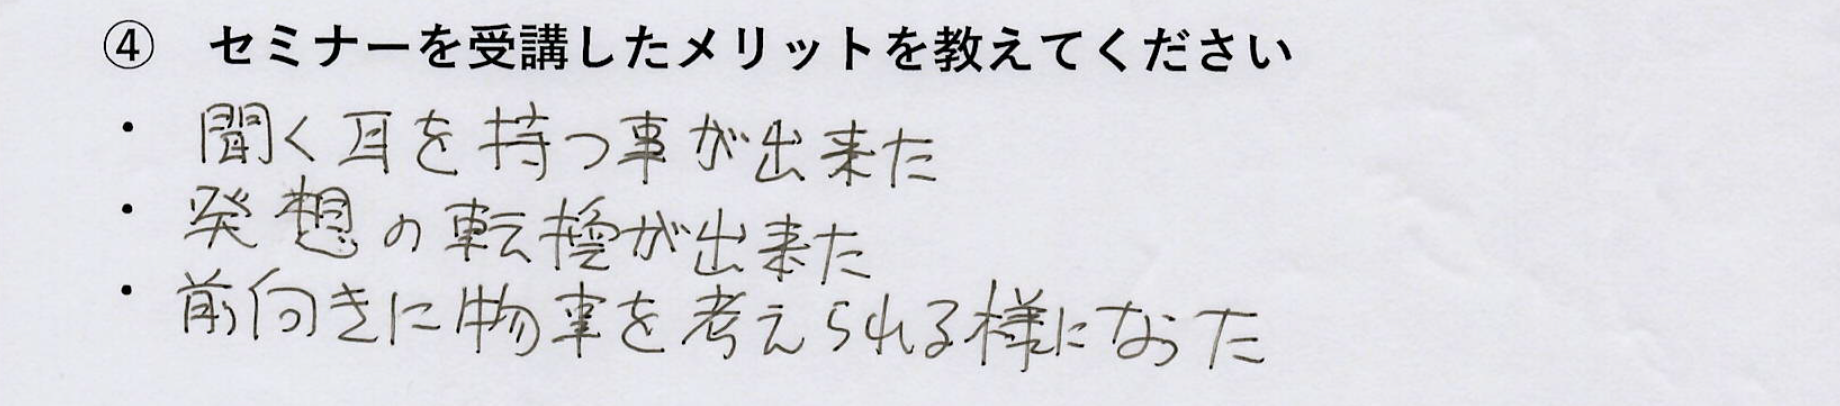 ④ セミナーを受講したメリットを教えてください
・ 聞く耳を持つ事が出来た
・ 発想の転換が出来た
・ 前向きに物事を考えられる様になった